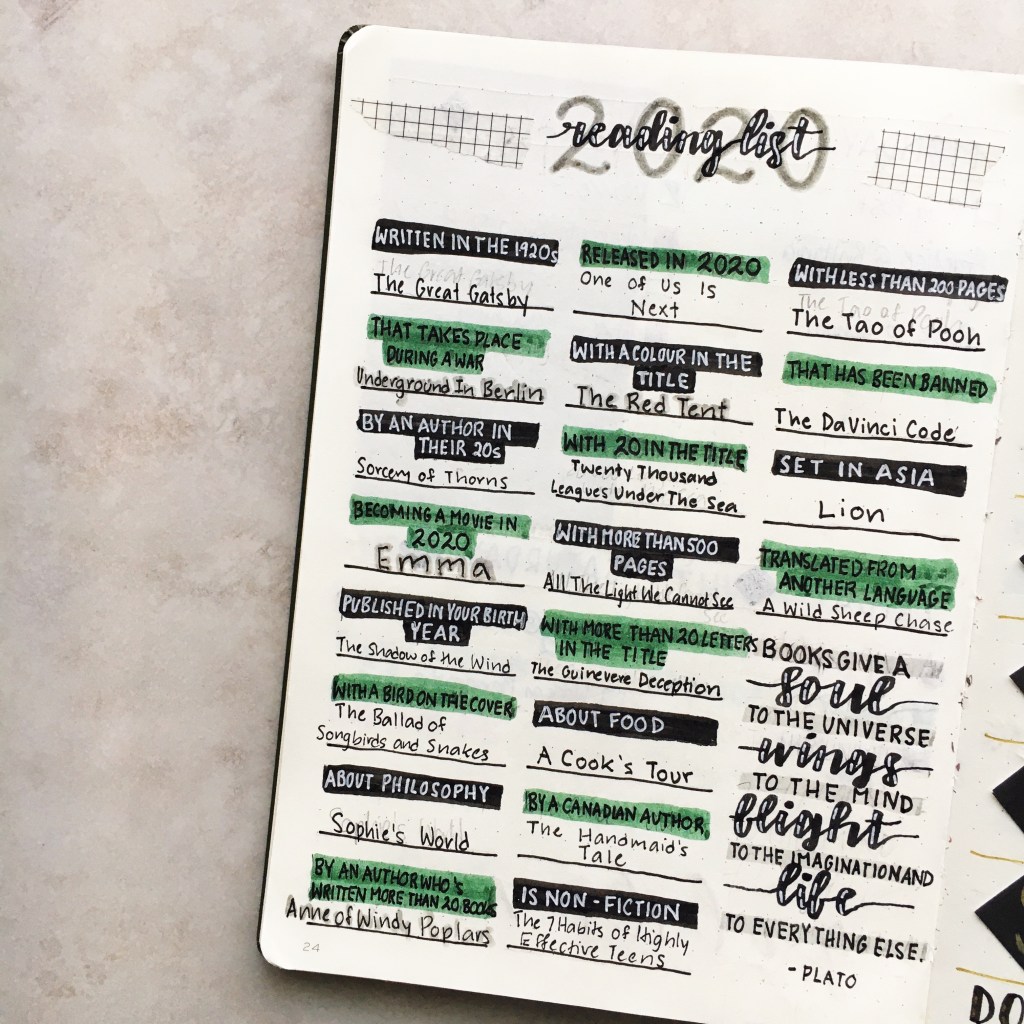 2020
reading list
WRITTEN IN THE 1920s
The Great Gatsby
THAT TAKES PLACE
DURING A WAR
Underground In Berlin
BY AN AUTHOR IN
THEIR 20s
Sorcery of Thorns
BECOMING A MOVIE IN
2020
Emma
PUBLISHED IN YOUR BIRTH
YEAR
The Shadow of the Wind
WITH A BIRD ON THE COVER
The Ballad of
Songbirds and Snakes
ABOUT PHILOSOPHY
Sophie's World
BY AN AUTHOR WHO'S
WRITTEN MORE THAN 20 BOOKS
Anne of Windy Poplars
24
RELEASED IN 2020
One of Us Is
Next
WITH A COLOUR IN THE
TITLE
The Red Tent
WITH 20 IN THE TITLE
Twenty Thousand
Leagues Under The Sea
WITH MORE THAN 500
PAGES
All The Light We Cannot See
WITH MORE THAN 20 LETTERS
IN THE TITLE
The Guinevere Deception
ABOUT FOOD
A Cook's Tour
BY A CANADIAN AUTHOR
The Handmaid's
Tale
IS NON-FICTION
The 7 Habits of Highly
Effective Teens
WITH LESS THAN 200 PAGES
The Tao of Pooh
THAT HAS BEEN BANNED
The DaVinci Code
SET IN ASIA
Lion
TRANSLATED FROM
ANOTHER LANGUAGE
A Wild Sheep Chase
BOOKS GIVE A
soul
TO THE UNIVERSE
wings
TO THE MIND
flight
TO THE IMAGINATION AND
life
TO EVERYTHING ELSE!
- PLATO
DO